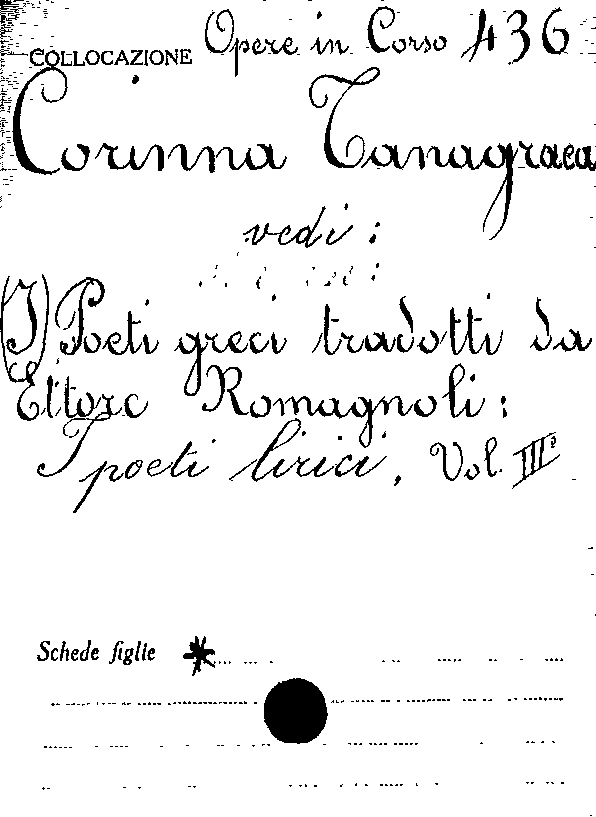 COLLOCAZIONE Opere in Corso 436
Corinna Tanagraea
vedi :
(I) Poeti greci tradotti da
Ettore Romagnoli :
I poeti lirici, Vol. III°
Schede figlie *